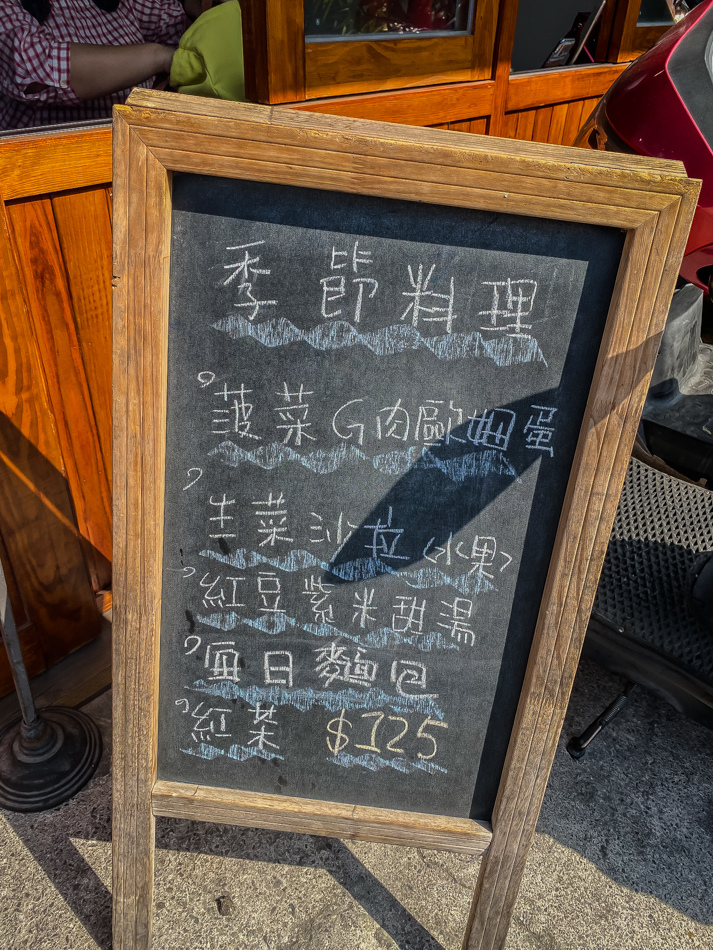 季節料理
菠菜G肉歐姆蛋
生菜沙拉<水果>
紅豆紫米甜湯
每日麵包
紅茶 $125